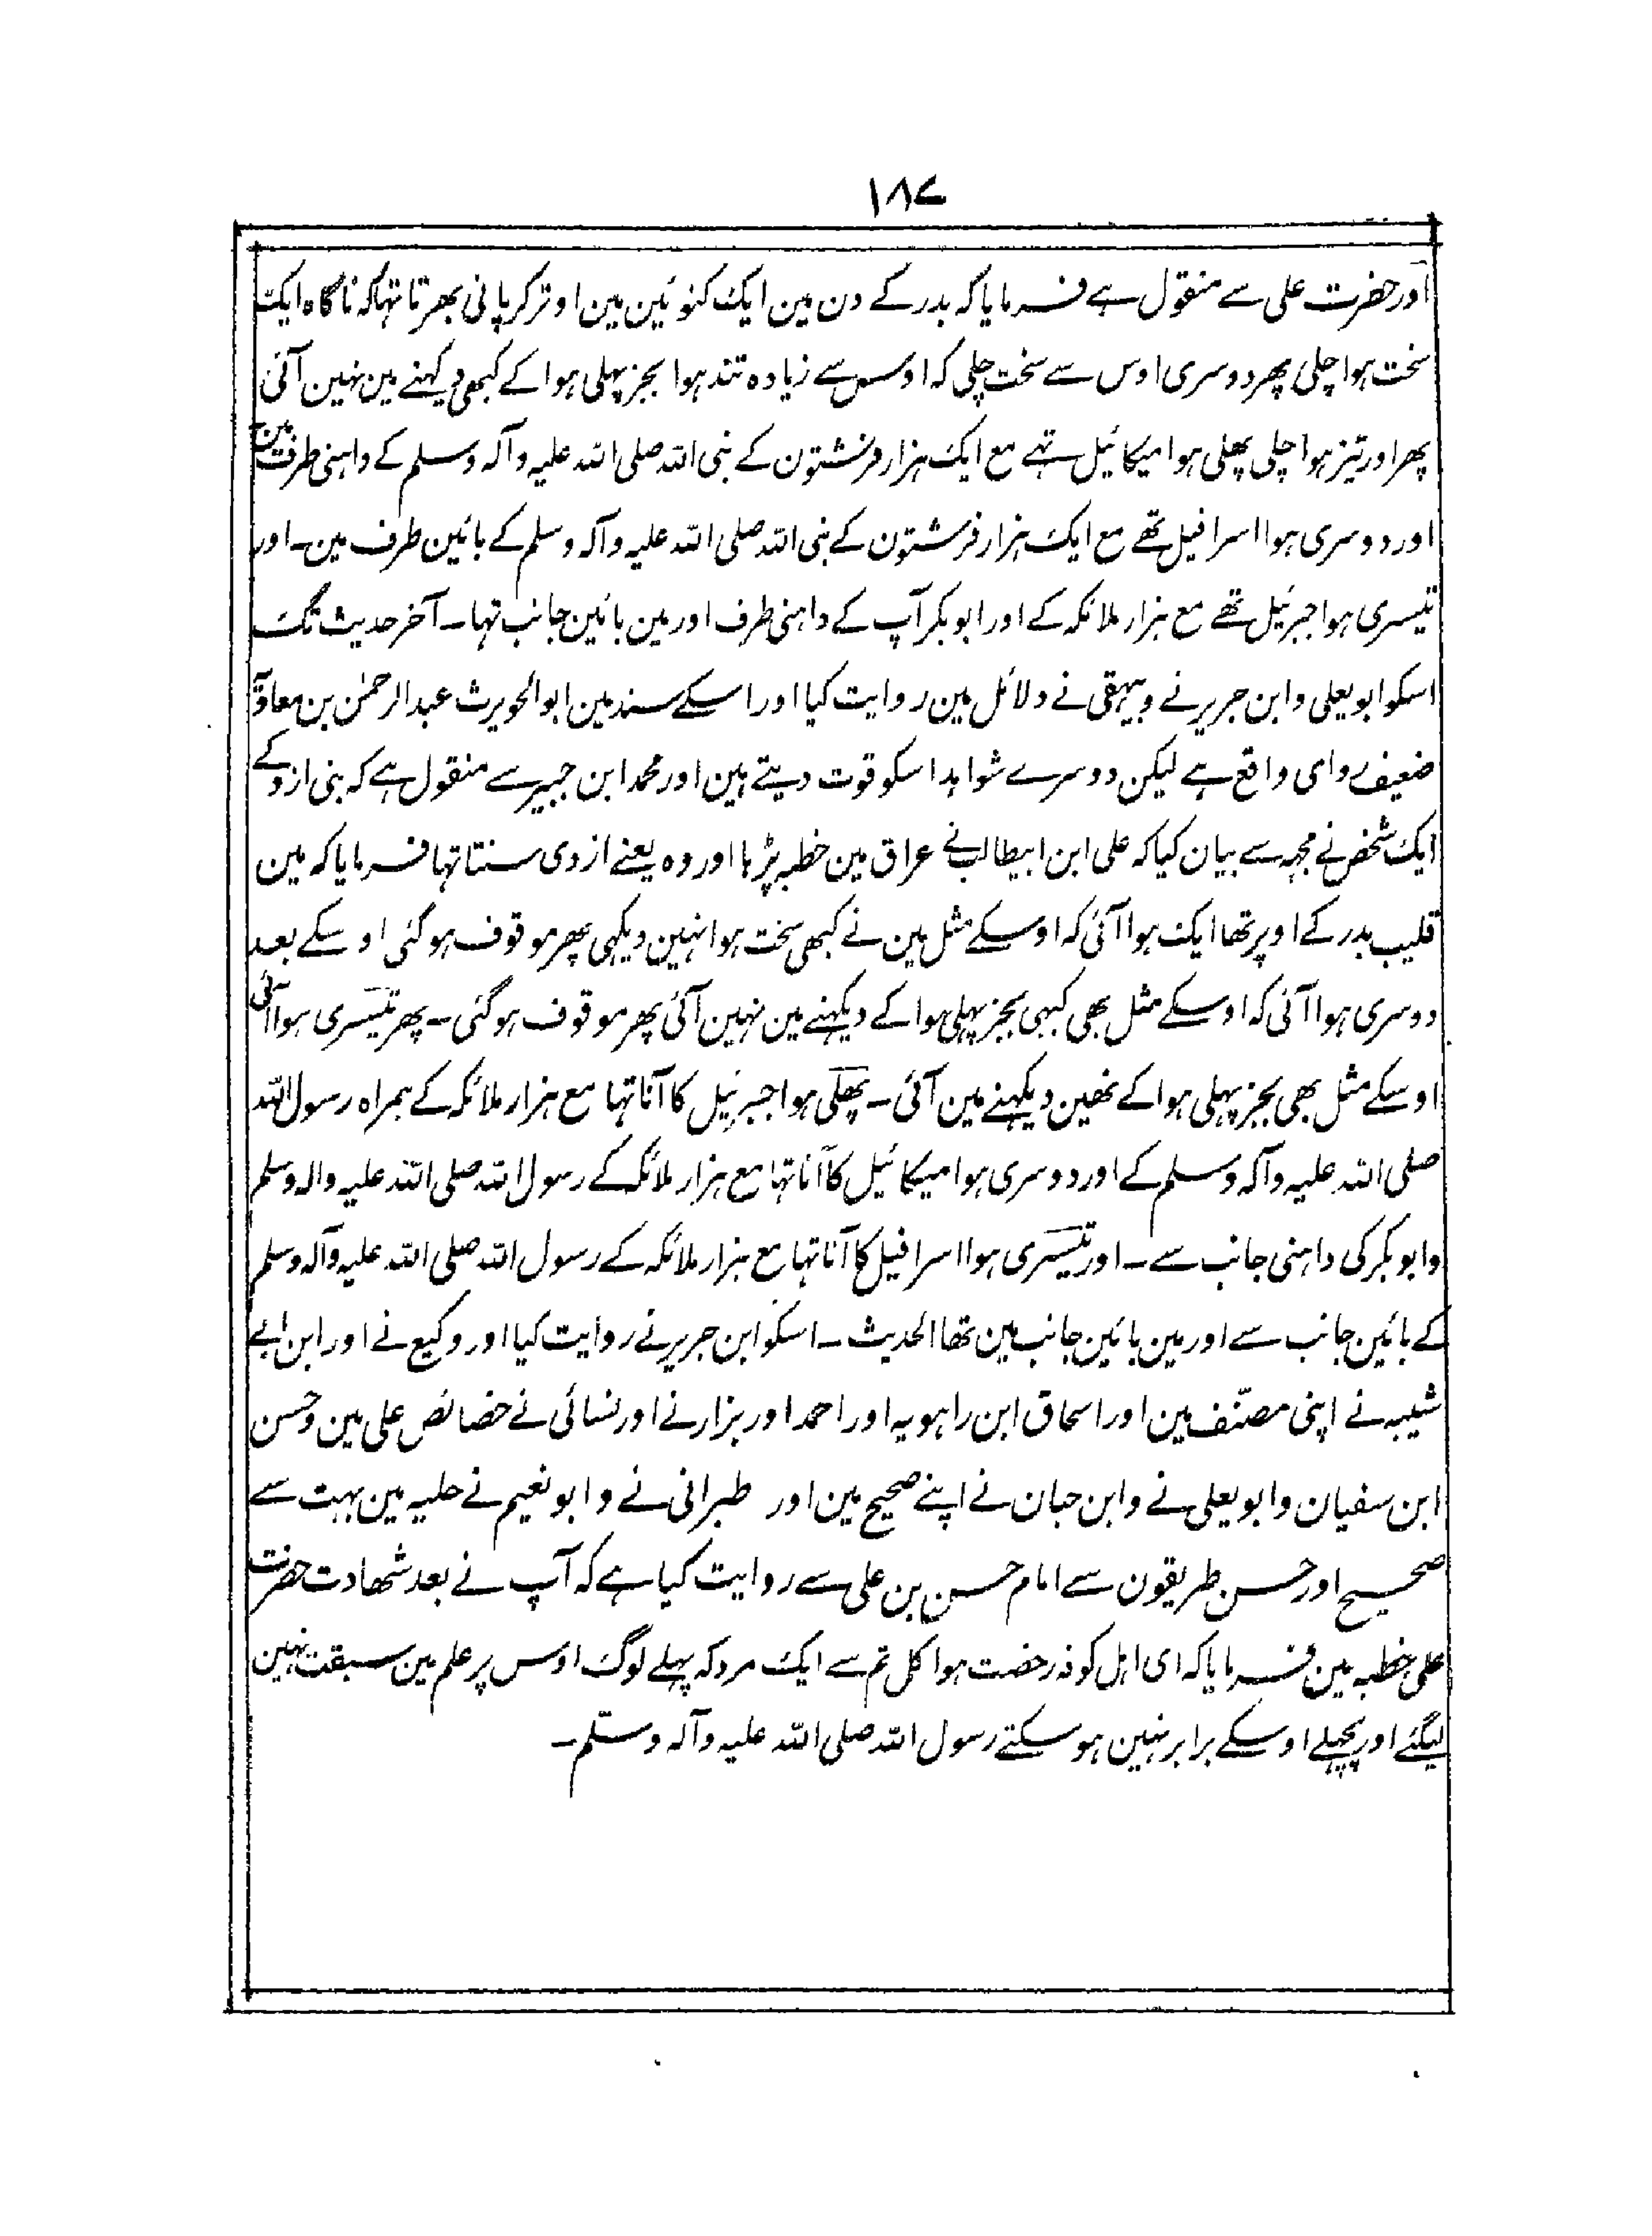 ۱۸۷
اور حضرت علی سے منقول ہے فرمایا کہ بدر کے دن مین ایک کنوئین مین اوتر کر پانی بھرتا تہا کہ ناگاہ ایک
سخت ہوا چلی پھر دوسری اوس سے سخت چلی کہ اوس سے زیادہ تند ہوا بجز پہلی ہوا کے کبھی دیکہنے مین نہین آئی
پھر اور تیز ہوا چلی پھلی ہوا میکائیل تہے مع ایک ہزار فرشتون کے نبی اللہ صلی اللہ علیہ وآلہ وسلم کے داہنی طرف مین
اور دوسری ہوا اسرافیل تھے مع ایک ہزار فرشتون کے نبی اللہ صلی اللہ علیہ وآلہ وسلم کے بائین طرف مین۔ اور
تیسری ہوا جبرئیل تھے مع ہزار ملائکہ کے اور ابوبکر آپ کے داہنی طرف اور مین بائین جانب تہا۔ آخر حدیث تک
اسکو ابو یعلی وابن جریر نے و بیہقی نے دلائل مین روایت کیا اور اسکے سند مین ابو الحویرث عبد الرحمٰن بن معاویہ
ضعیف روای واقع ہے لیکن دوسرے شواہد اسکو قوت دیتے ہین اور محمد ابن جبیر سے منقول ہے کہ بنی ازد کے
ایک شخص نے مجہہ سے بیان کیا کہ علی ابن ابیطالب نے عراق مین خطبہ پڑہا اور وہ یعنے ازدی سنتا تہا فرمایا کہ مین
قلیب بدر کے اوپر تھا ایک ہوا آئی کہ اوسکے مثل مین نے کبھی سخت ہوا نہین دیکہی پھر موقوف ہو گئی اوسکے بعد
دوسری ہوا آئی کہ اوسکے مثل بھی کبہی بجز پہلی ہوا کے دیکہنے مین نہین آئی پھر موقوف ہو گئی۔ پھر تیسری ہوا آئی
اوسکے مثل بھی بجز پہلی ہوا کے نھین دیکہنے مین آئی۔ پھلی ہوا جبرئیل کا آنا تہا مع ہزار ملائکہ کے ہمراہ رسول اللہ
صلی اللہ علیہ وآلہ وسلم کے اور دوسری ہوا میکائیل کا آنا تہا مع ہزار ملائکہ کے رسول اللہ صلی اللہ علیہ والہ وسلم
وابوبکر کی داہنی جانب سے۔ اور تیسری ہوا اسرافیل کا آنا تہا مع ہزار ملائکہ کے رسول اللہ صلی اللہ علیہ وآلہ وسلم
کے بائین جانب سے اور مین بائین جانب مین تھا الحدیث۔ اسکو ابن جریر نے روایت کیا اور وکیع نے اور ابن ابے
شیبہ نے اپنی مصنّف مین اور اسحاق ابن راہویہ اور احمد اور بزار نے اور نسائی نے خصائص علی مین و حسن
ابن سفیان و ابو یعلی نے و ابن حبان نے اپنے صحیح مین اور طبرانی نے و ابو نعیم نے حلیہ مین بہت سے
صحیح اور حسن طریقون سے امام حسن بن علی سے روایت کیا ہے کہ آپ نے بعد شھادت حضرت
علی خطبہ مین فرمایا کہ ای اہل کوفہ رخصت ہوا کل تم سے ایک مرد کہ پہلے لوگ اوس پر علم مین سبقت نہین
لیگئے اور پچہلے اوسکے برابر نہین ہو سکتے رسول اللہ صلی اللہ علیہ وآلہ وسلّم۔